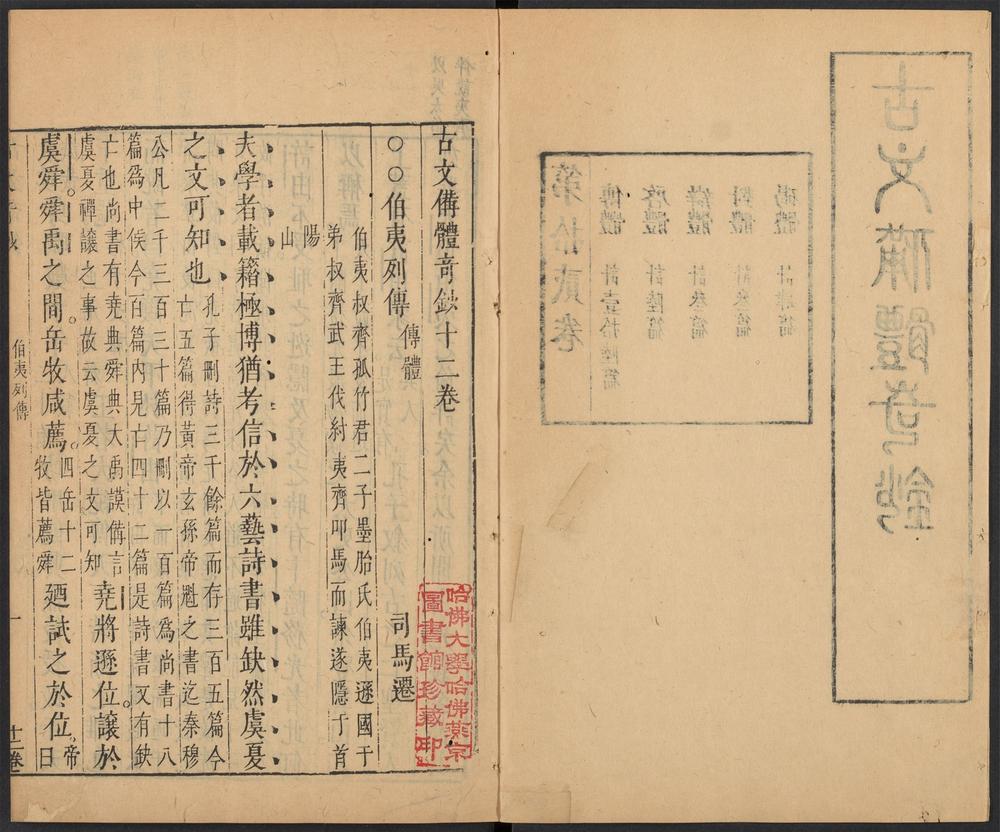 古文備體奇鈔
第拾貳卷
傳體 計壹拾陸篇
啓體 計陸篇
計叁篇
對體 計叁篇
碣體 計肆篇
古文備體奇鈔十二卷
哈佛大學哈佛燕京
圖書館珍藏印
○○伯夷列傳 傳體 司馬遷
伯夷叔齊孤竹君二子墨胎氏伯夷遜國于
弟叔齊武王伐紂夷齊叩馬而諫遂隱于首
陽
山
夫學者載籍極博猶考信於六藝詩書雖缺然虞夏
之文可知也
孔子刪詩三千餘篇而存三百五篇今
亡五篇得黃帝玄孫帝魁之書迄秦穆
公凡二千三百三十篇乃刪以一百篇爲尚書十八
篇爲中候今百篇內見亡四十二篇是詩書又有缺
亡也尚書有堯典舜典大禹謨備言
虞夏禪讓之事故云虞夏之文可知
堯將遜位。讓於
虞舜。舜禹之間。岳牧咸薦。
四岳十二
牧皆薦舜
廼試之於位。
帝
曰
伯夷列傳 一 十二卷